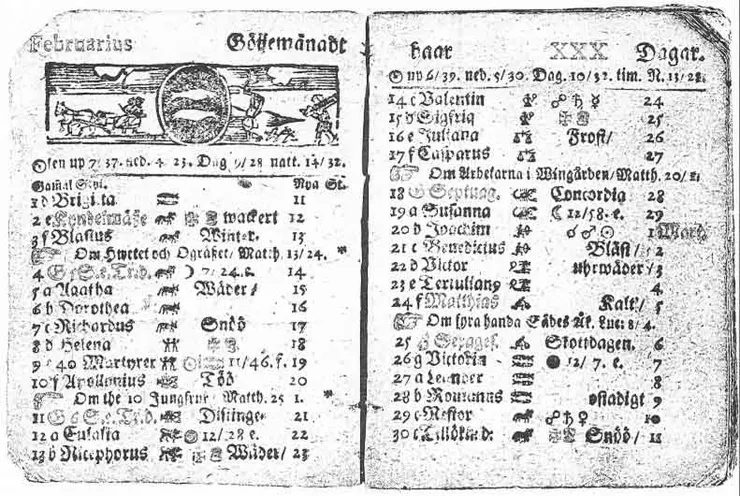 Februarius Götjemånadt
Solen up 7/37. ned. 4 23. Dag 9/28 natt. 14/32.
Gamal Styl. Nya St.
1 d Brigitta 11
2 e Kyndelmässe wackert 12
3 f Blasius Winter. 13
Om Hwetet och Ogräset/ Matth. 13/24.
4 G 5 S. e. Tr. d. 7/24. 14
5 a Agatha Wäder/ 15
6 b Dorothea 16
7 c Richardus Snöö 17
8 d Helena 18
9 e 40 Martyrer 11/46. f. 19
10 f Apollonius Töö 20
Om the 10 Jungfrur Matth. 25 1.
11 G 6 S. e. Tr. d. Distinge 21
12 a Eulalia 12/28 e. 22
13 b Nicephorus Wäder/ 23
haar XXX Dagar.
☉ up 6/39. ned. 5/30. Dag. 10/32. tim. N. 13/28.
14 c Valentin ☍ ♄ ☿ 24
15 d Sigfrid 25
16 e Juliana Frost/ 26
17 f Casparus 27
Om Arbetarna i Wingården/ Matth. 20/1.
18 G Septuag. Concordia 28
19 a Susanna ☾ 12/58. e. 29
20 b Joachim ☌ ♂ ☉ 1 Mart.
21 c Benedictus Bläst/ 2
22 d Victor uhrwäder/ 3
23 e Tertulian9 4
24 f Matthias Kalt/ 5
Om fyra handa Sädes Åk. Luc. 8/4.
25 G Sexages. Skottdagen. 6
26 g Victorin ● 12/7. e. 7
27 a Leander 8
28 b Romanus ostadigt 9
29 c Nestor ☍ ♄ ♀ 10
30 c Tillökind: Snöö/ 11